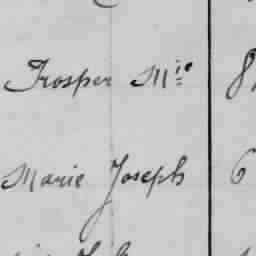 Prosper Mie 8
Marie Joseph 6